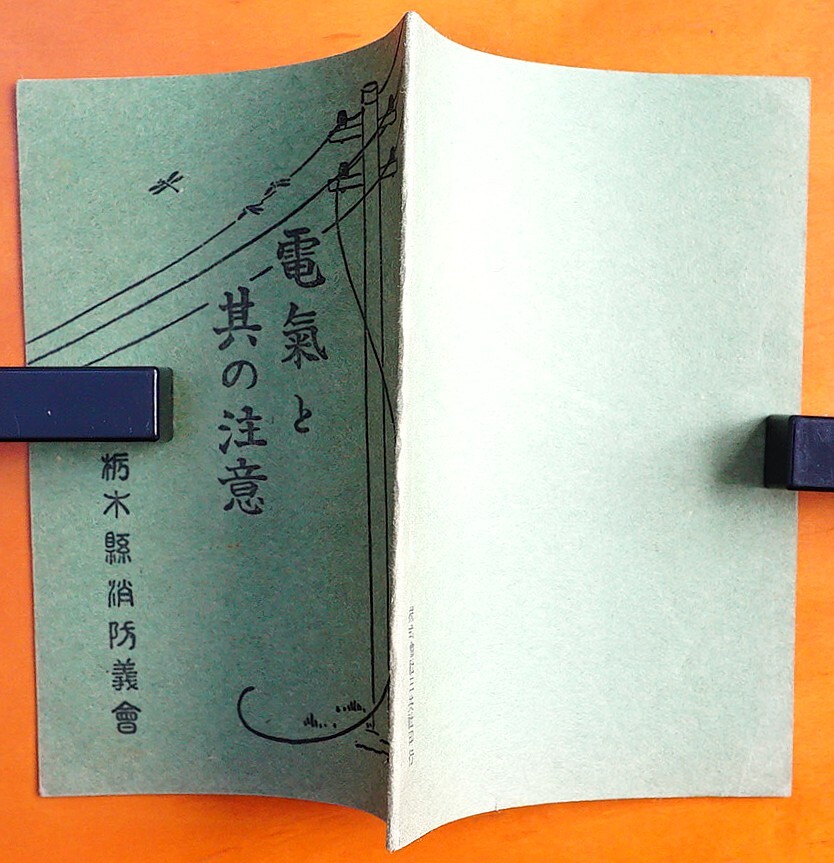 電氣と
其の注意
栃木縣消防義會